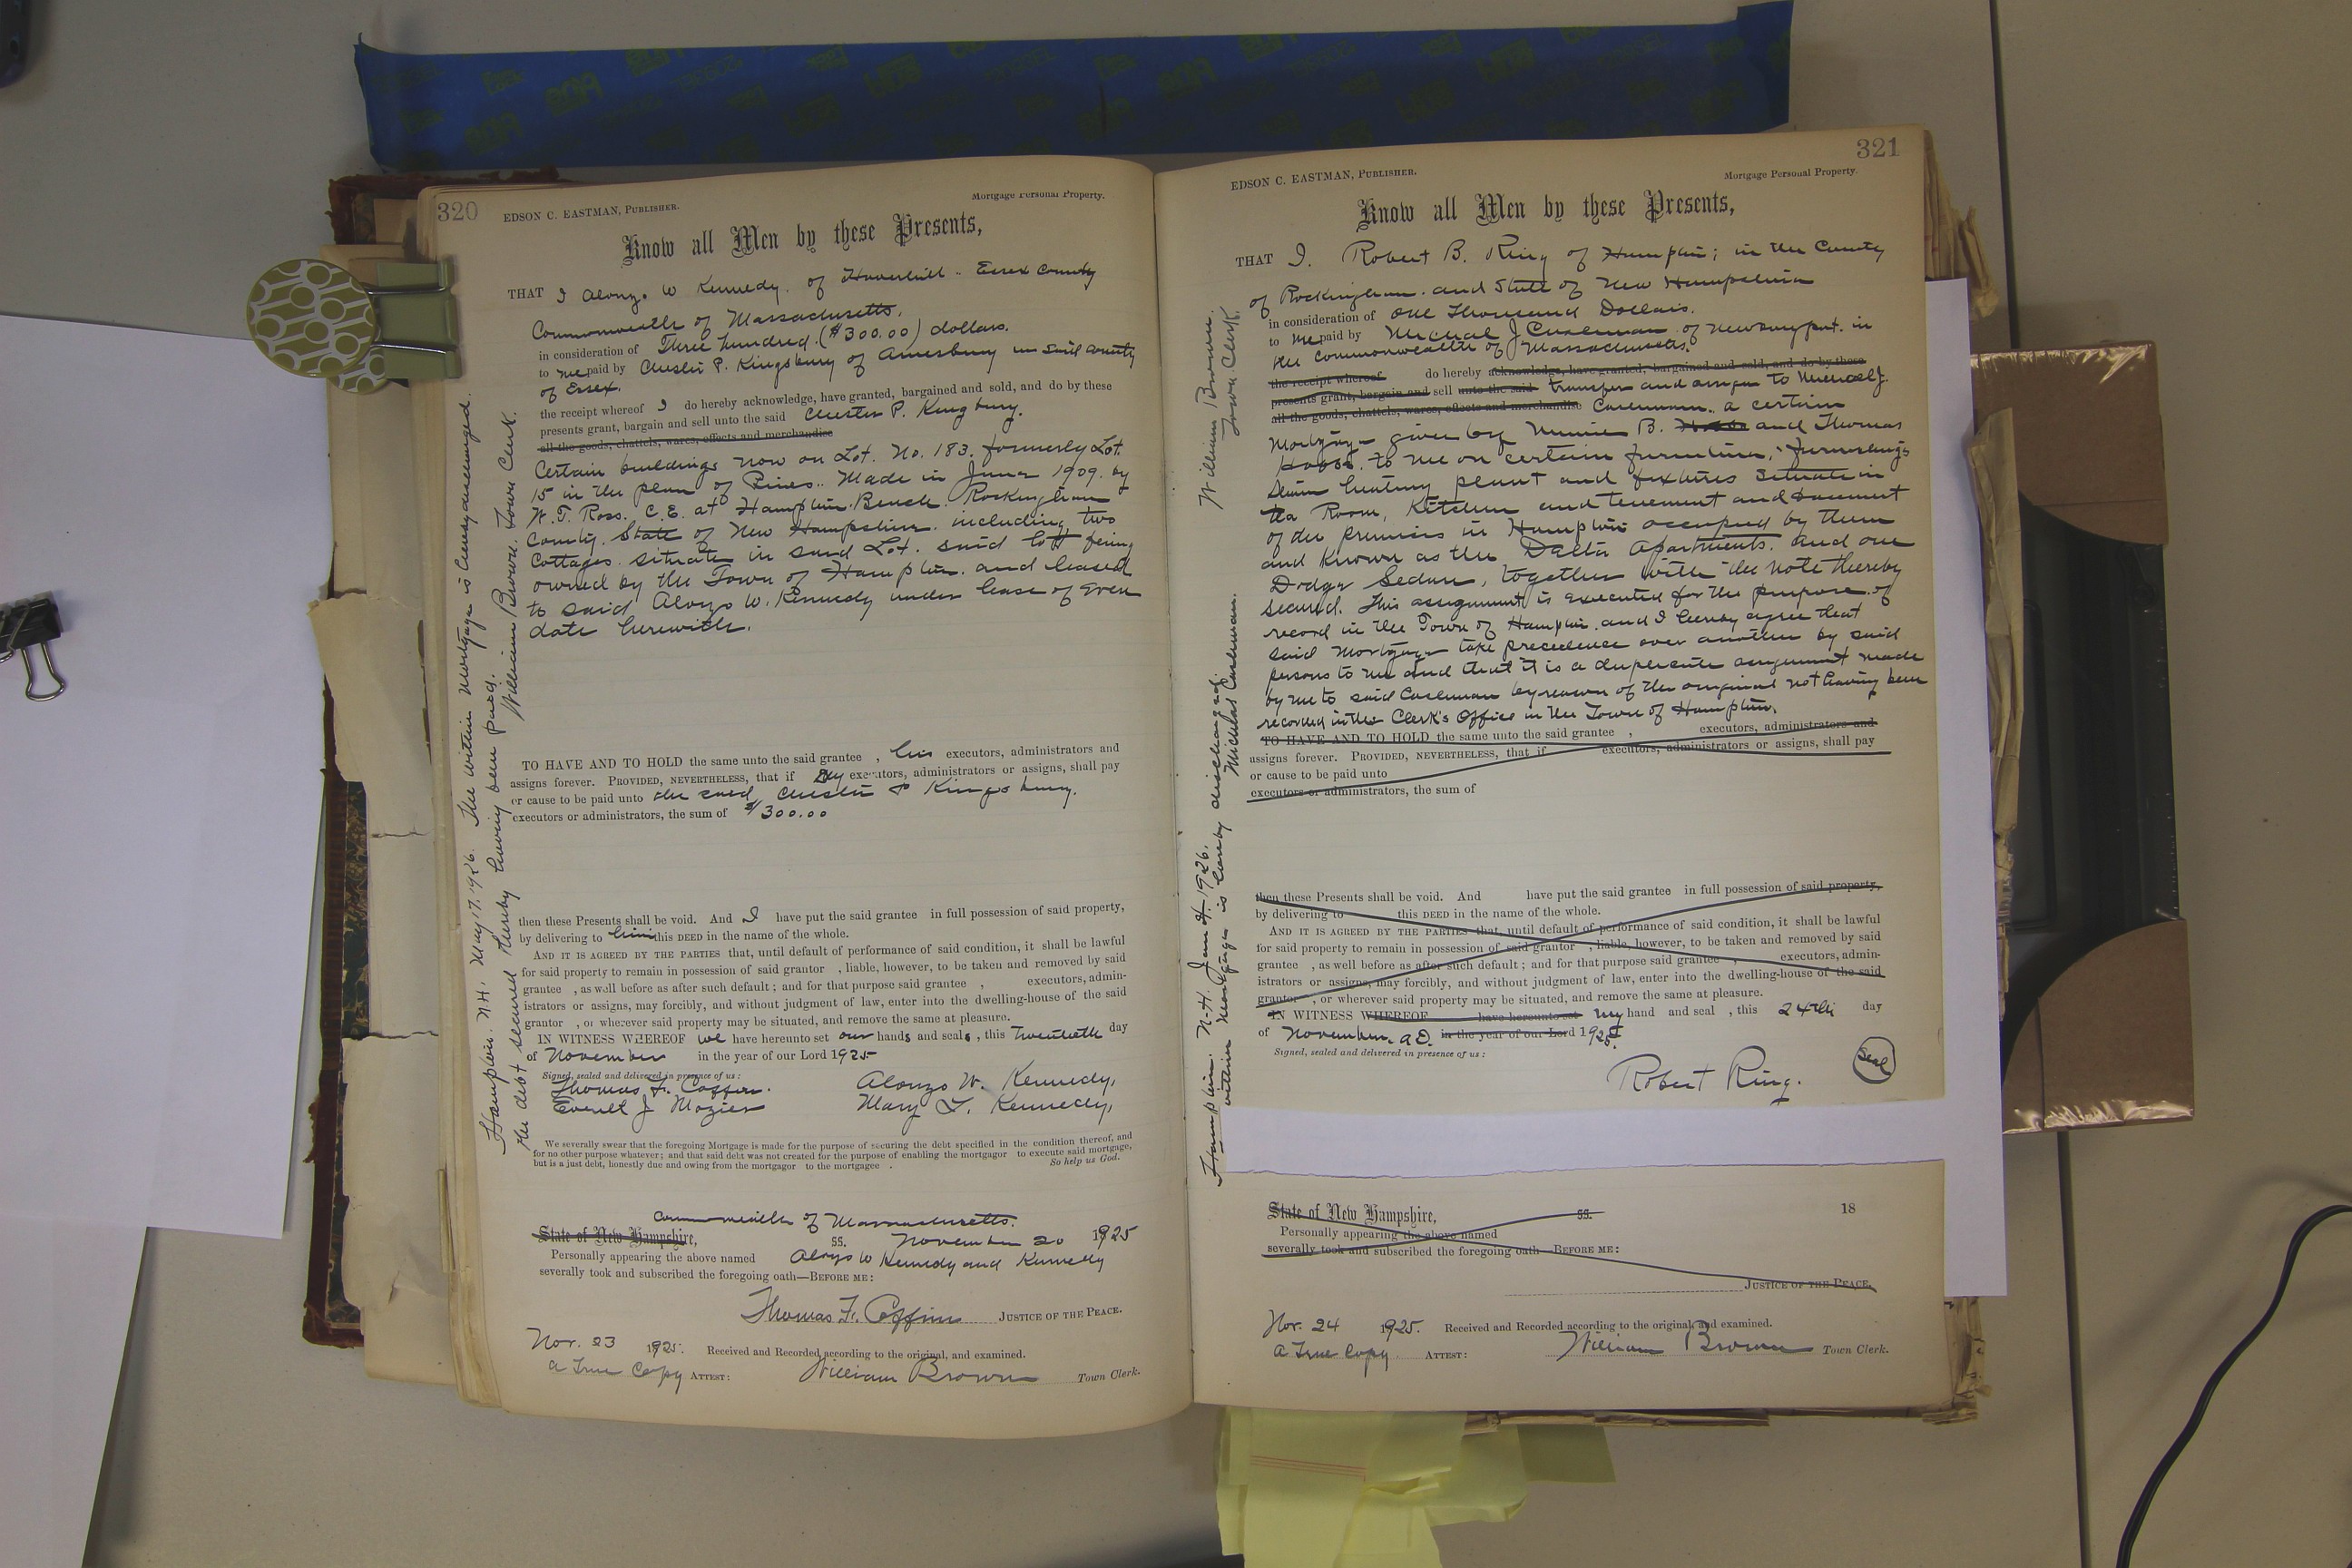 320
EDSON C. EASTMAN, PUBLISHER.
Mortgage Personal Property.
Know all Men by these Presents,
THAT I Alonzo W Kennedy of Haverhill .. Essex County
Commonwealth of Massachusetts,
in consideration of Three hundred ($300.00) dollars.
to me paid by Chester P. Kingsbury of Amesbury in said County
of Essex.
the receipt whereof I do hereby acknowledge, have granted, bargained and sold, and do by these
presents grant, bargain and sell unto the said Chester P. Kingsbury.
all the goods, chattels, wares, effects and merchandise
Certain buildings now on Lot. No. 183. formerly Lot.
15 in the plan of Pines.. Made in June 1909. by
W. T. Ross. C.E. at Hampton Beach. Rockingham
County. State of New Hampshire. including two
Cottages situate in said Lot. said lott being
owned by the Town of Hampton. and leased
to said Alonzo W. Kennedy under lease of even
date herewith.
TO HAVE AND TO HOLD the same unto the said grantee , his executors, administrators and
assigns forever. PROVIDED, NEVERTHELESS, that if my executors, administrators or assigns, shall pay
or cause to be paid unto the said Chester P Kingsbury.
executors or administrators, the sum of $300.00
then these Presents shall be void. And I have put the said grantee in full possession of said property,
by delivering to him this DEED in the name of the whole.
AND IT IS AGREED BY THE PARTIES that, until default of performance of said condition, it shall be lawful
for said property to remain in possession of said grantor , liable, however, to be taken and removed by said
grantee , as well before as after such default ; and for that purpose said grantee , executors, admin-
istrators or assigns, may forcibly, and without judgment of law, enter into the dwelling-house of the said
grantor , or wherever said property may be situated, and remove the same at pleasure.
IN WITNESS WHEREOF we have hereunto set our hands and seals, this twentieth day
of November in the year of our Lord 1925
Signed, sealed and delivered in presence of us :
Thomas F. Coffin. Alonzo W. Kennedy,
Everett J Mozier Mary T. Kennedy,
We severally swear that the foregoing Mortgage is made for the purpose of securing the debt specified in the condition thereof, and
for no other purpose whatever; and that said debt was not created for the purpose of enabling the mortgagor to execute said mortgage,
but is a just debt, honestly due and owing from the mortgagor to the mortgagee .
So help us God.
Commonwealth of Massachusetts.
State of New Hampshire, SS. November 20 1925
Personally appearing the above named Alonzo W Kennedy and Kennedy
severally took and subscribed the foregoing oath—BEFORE ME:
Thomas F. Coffin JUSTICE OF THE PEACE.
Nov. 23 1925. Received and Recorded according to the original, and examined.
A True Copy ATTEST: William Brown Town Clerk.
Hampton. N.H. May 17. 1926. The within mortgage is hereby discharged.
the debt secured thereby having been paid.
William Brown. Town Clerk.
321
EDSON C. EASTMAN, PUBLISHER.
Mortgage Personal Property.
Know all Men by these Presents,
THAT I. Robert B. Ring of Hampton; in the County
of Rockingham. and State of New Hampshire
in consideration of one Thousand Dollars.
to me paid by Micheal J Cashman of Newburyport. in
the Commonwealth of Massachusetts.
the receipt whereof do hereby acknowledge, have granted, bargained and sold, and do by these
presents grant, bargain and sell unto the said transfer and assign to Micheal J.
all the goods, chattels, wares, effects and merchandise Cashman. a certain
Mortgage given by Minnie B. and Thomas
Hobbs. to me on certain furniture, furnishings
steam heating plant and fixtures situate in
tea Room, Kitchen and tenement and basement
of the premises in Hampton occupied by them
and Known as the Dalta Apartments. and one
Dodge Sedan, together with the note thereby
secured. This assignment is executed for the purpose of
record in the Town of Hampton. and I hereby agree that
said Mortgage take precedence over another by said
persons to me and that it is a duplicate assignment made
by me to said Cashman by reason of the original not having been
recorded in the Clerk's Office in the Town of Hampton.
TO HAVE AND TO HOLD the same unto the said grantee , executors, administrators and
assigns forever. PROVIDED, NEVERTHELESS, that if executors, administrators or assigns, shall pay
or cause to be paid unto
executors or administrators, the sum of
then these Presents shall be void. And have put the said grantee in full possession of said property,
by delivering to this DEED in the name of the whole.
AND IT IS AGREED BY THE PARTIES that, until default of performance of said condition, it shall be lawful
for said property to remain in possession of said grantor , liable, however, to be taken and removed by said
grantee , as well before as after such default ; and for that purpose said grantee , executors, admin-
istrators or assigns, may forcibly, and without judgment of law, enter into the dwelling-house of the said
grantor , or wherever said property may be situated, and remove the same at pleasure.
IN WITNESS WHEREOF have hereunto set my hand and seal , this 24th day
of November. A.D. in the year of our Lord 1925
Signed, sealed and delivered in presence of us :
Robert Ring. Seal
State of New Hampshire, SS. 18
Personally appearing the above named
severally took and subscribed the foregoing oath—BEFORE ME:
JUSTICE OF THE PEACE.
Nov. 24 1925. Received and Recorded according to the original, and examined.
A True Copy ATTEST: William Brown Town Clerk.
Hampton. N-H. 1926.
within Mortgage is hereby discharged.
Micheal Cashman.
William Brown.
Town Clerk.